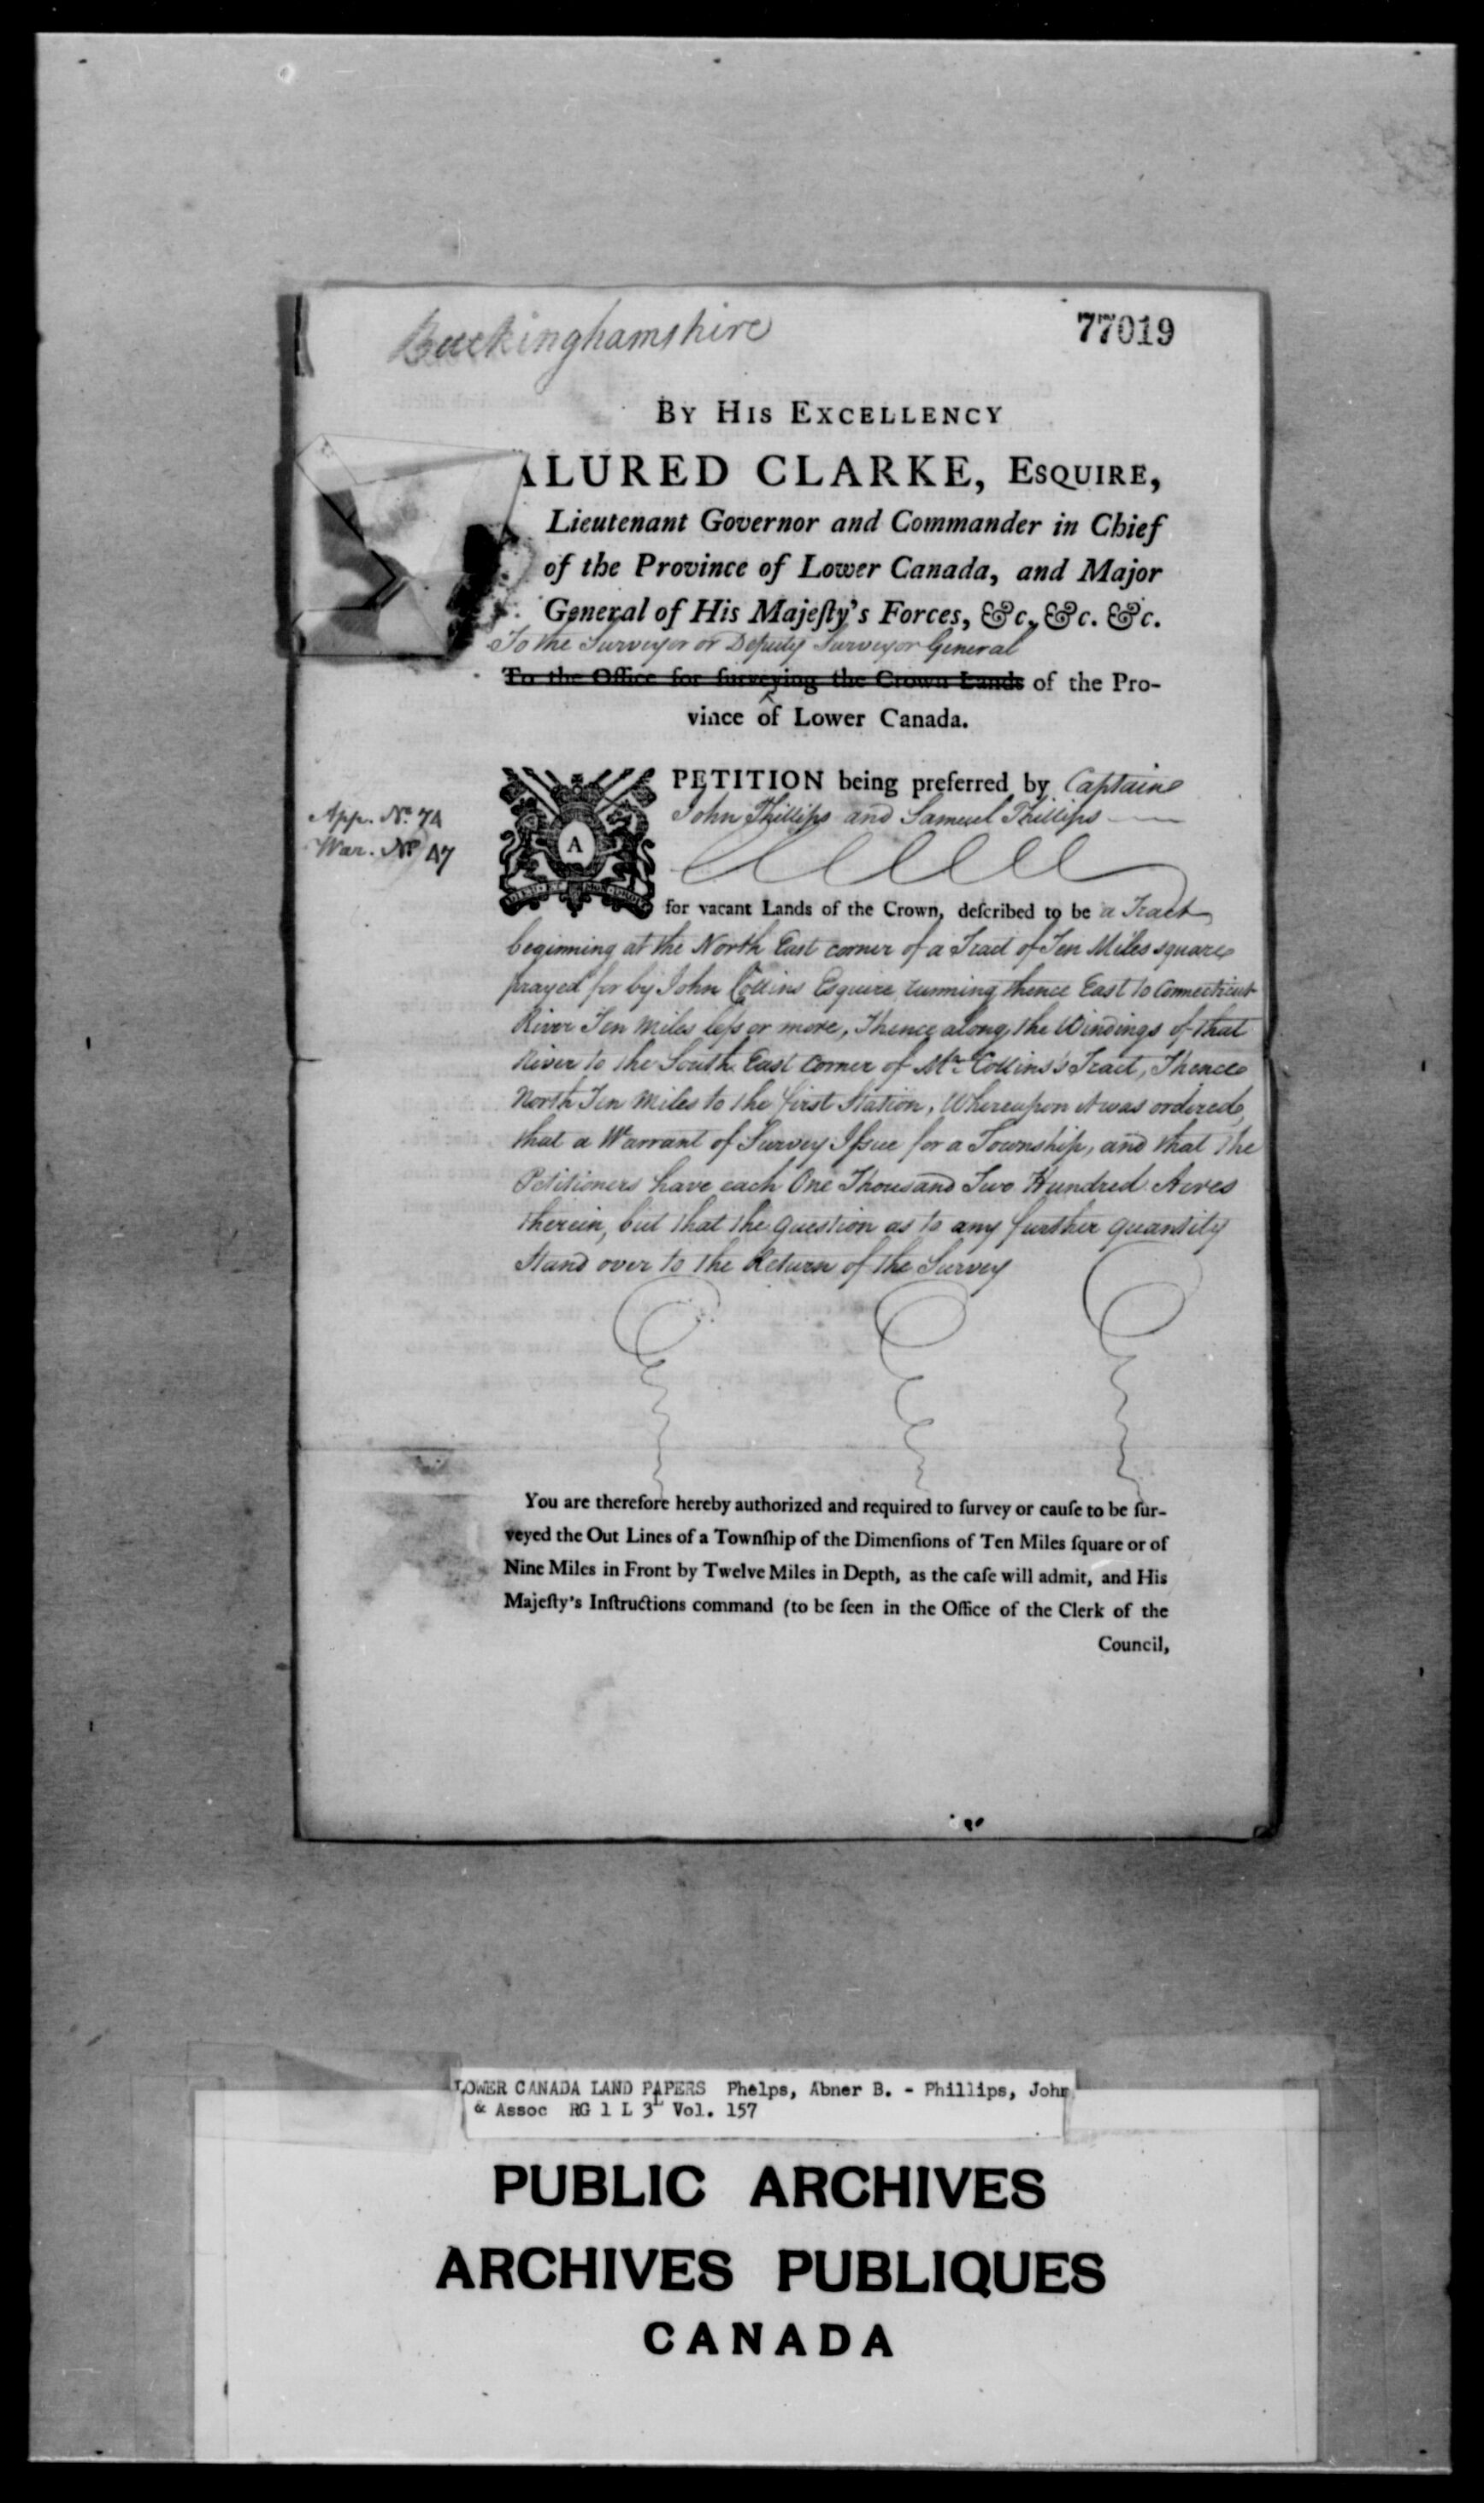 Buckinghamshire
77019
BY HIS EXCELLENCY
ALURED CLARKE, ESQUIRE,
Lieutenant Governor and Commander in Chief
of the Province of Lower Canada, and Major
General of His Majeſty's Forces, &c. &c. &c.
To the Surveyor or Deputy Surveyor General
To the Office for ſurveying the Crown Lands of the Pro-
vince of Lower Canada.
App. No. 74
War. No. 47
A PETITION being preferred by Captain
John Phillips and Samuel Phillips
for vacant Lands of the Crown, deſcribed to be a Tract
beginning at the North East corner of a Tract of Ten Miles square
prayed for by John Collins Esquire, running thence East to Connecticut
River Ten Miles leſs or more, Thence along the Windings of that
River to the South East Corner of Mr. Collins's Tract, Thence
North Ten Miles to the first Station, Whereupon it was ordered,
that a Warrant of Survey Iſsue for a Township, and that the
Petitioners have each One Thousand Two Hundred Acres
therein, but that the question as to any further quantity
Stand over to the Return of the Survey
You are therefore hereby authorized and required to ſurvey or cauſe to be ſur-
veyed the Out Lines of a Townſhip of the Dimenſions of Ten Miles ſquare or of
Nine Miles in Front by Twelve Miles in Depth, as the caſe will admit, and His
Majeſty's Inſtructions command (to be ſeen in the Office of the Clerk of the
Council,
LOWER CANADA LAND PAPERS Phelps, Abner B. - Phillips, John
& Assoc RG 1 L 3L Vol. 157
PUBLIC ARCHIVES
ARCHIVES PUBLIQUES
CANADA